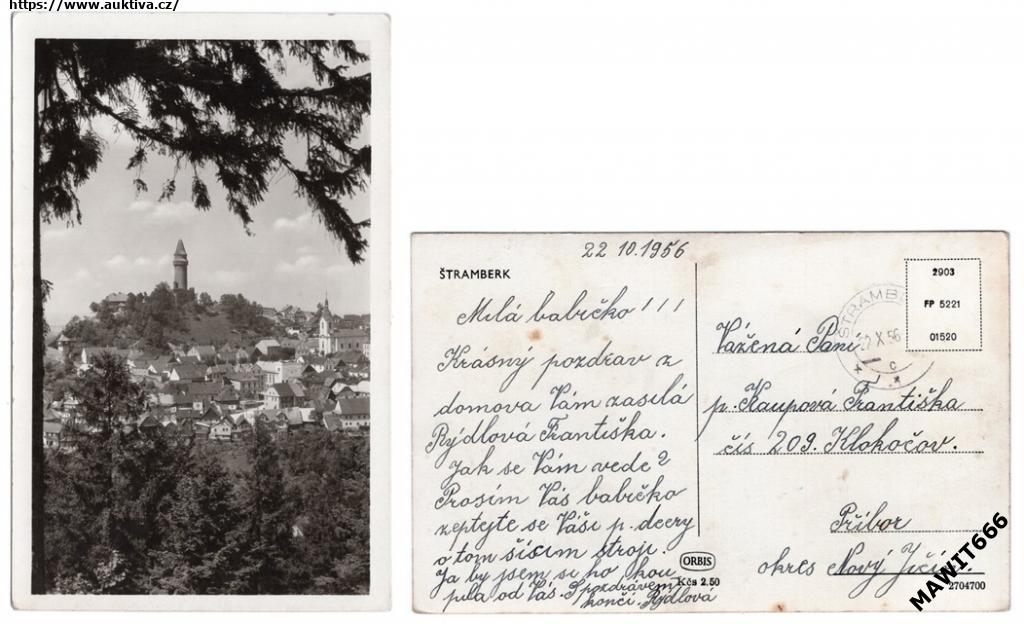 https://www.auktiva.cz/
22 10.1956
ŠTRAMBERK
Milá babičko!!!
Krásný pozdrav z
domova Vám zasílá
Rýdlová Františka.
Jak se Vám vede?
Prosím Vás babičko
zeptejte se Vaši p. dcery
o tom šicím stroji.
Ja by jsem si ho kou
pila od Vás. S pozdrávem
končí Rýdlová
ORBIS
Kčs 2.50
2903
FP 5221
01520
ŠTRAMB
22 X 56
c
Vážená Paní
p. Kaupová Františka
čís 209. Klokočov.
Příbor
okres Nový Jičín
2704700
MAWIT666